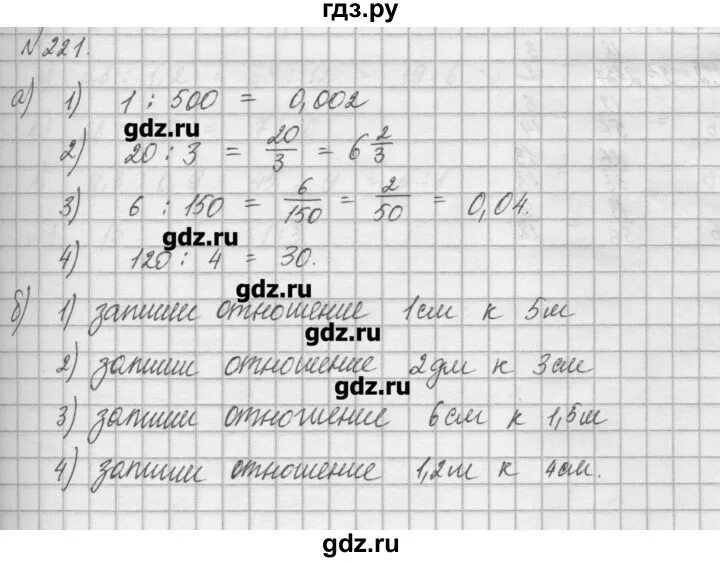 гдз.ру
№ 221.
а) 1) 1 : 500 = 0,002
gdz.ru
2) 20 : 3 = 20/3 = 6 2/3
3) 6 : 150 = 6/150 = 2/50 = 0,04.
gdz.ru
4) 120 : 4 = 30.
gdz.ru
б) 1) запиши отношение 1см к 5м
gdz.ru
2) запиши отношение 2дм к 3см
gdz.ru
3) запиши отношение 6см к 1,5м
4) запиши отношение 1,2м к 4см.
gdz.ru